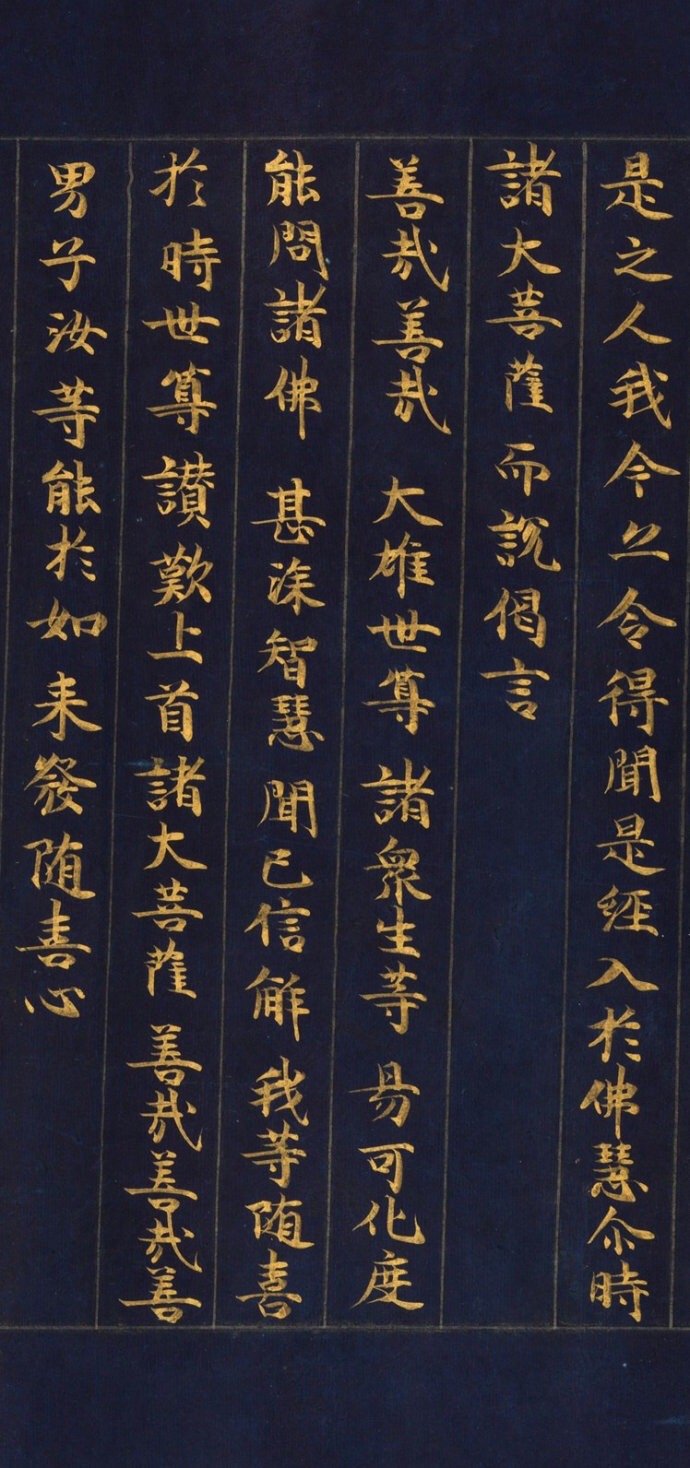 是之人我今亦令得聞是經入於佛慧尒時
諸大菩薩而說偈言
善哉善哉 大雄世尊 諸衆生等 易可化度
能問諸佛 甚深智慧 聞已信解 我等随喜
於時世尊讃歎上首諸大菩薩善哉善哉善
男子汝等能於如来發随喜心